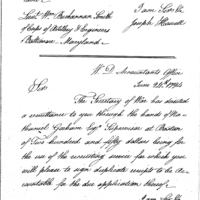 I am Sir &c
Joseph Howell
Lieut. Wm. Buchannan Smith
of Corps of Artillery & Engineers
Baltimore Maryland
W. D. Accountants Office
June 24th 1794
Sir
The Secretary of War has directed
a remittance to you through the hands of Na-
thaniel Gorham Esqr. Supervisor at Boston
of Two hundred and fifty dollars being for
the use of the recruiting service for which you
will please to sign duplicate receipts to be Ac-
countable for the due application thereof
I am Sir &c